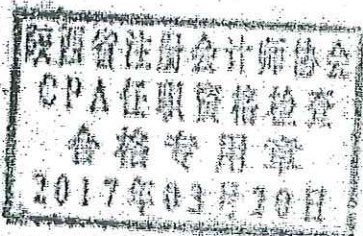 陕西省注册会计师协会
CPA任职资格检查
合格专用章
2017年03月30日